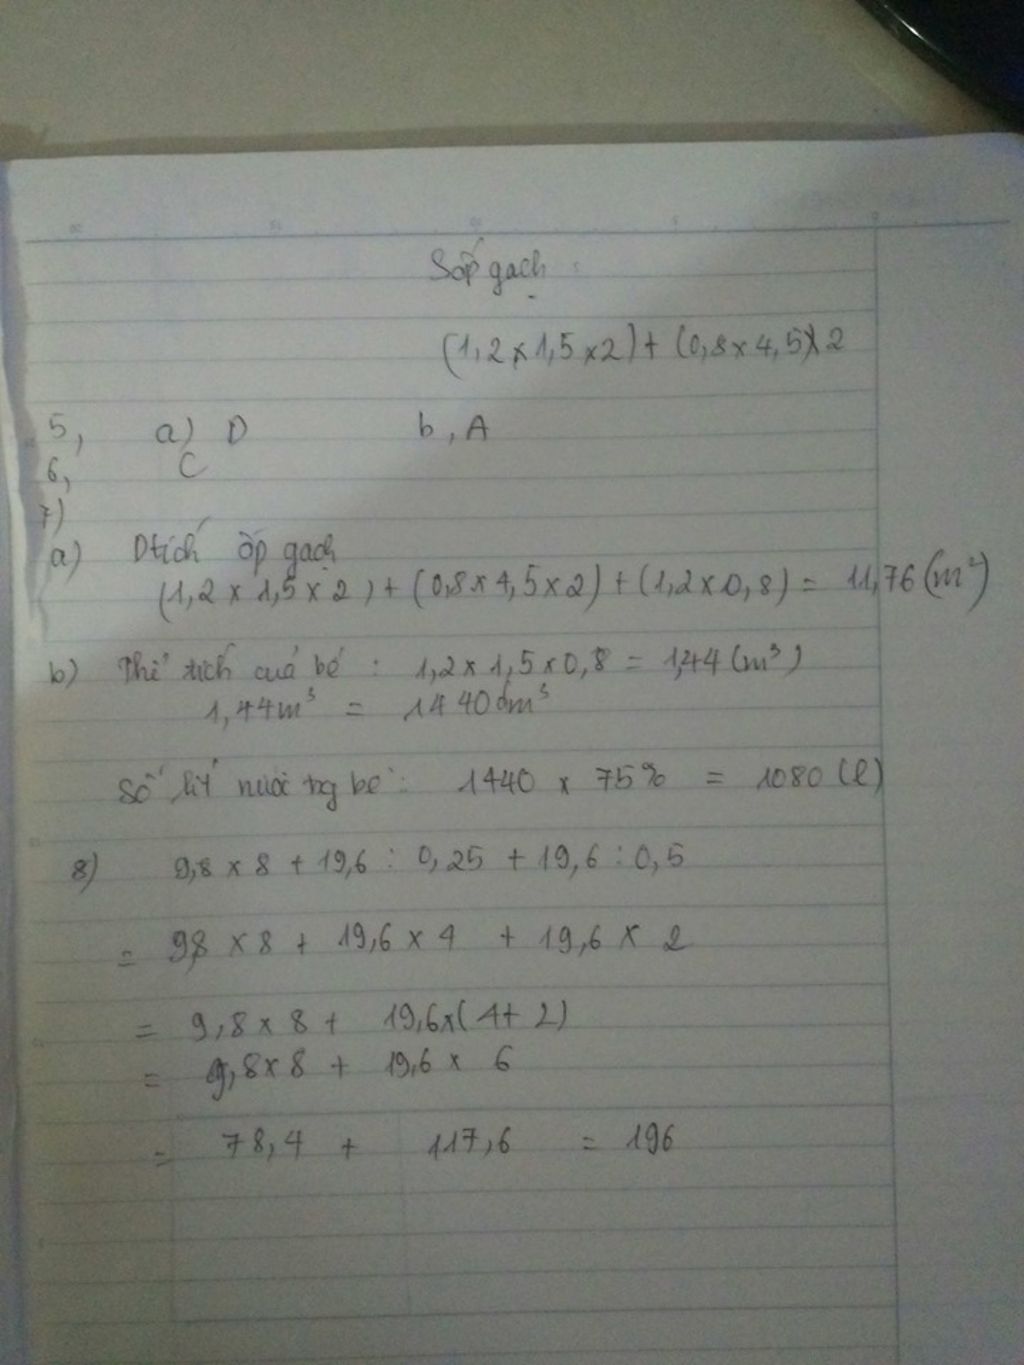 Sốp gạch :
(1,2 x 1,5 x 2) + (0,8 x 4,5) x 2
5, a) D b, A
6, C
7)
a) Dtích ốp gạch
(1,2 x 1,5 x 2) + (0,8 x 4,5 x 2) + (1,2 x 0,8) = 11,76 (m²)
b) Thể tích của bể : 1,2 x 1,5 x 0,8 = 1,44 (m³)
1,44m³ = 1440dm³
Số lít nước tg bể : 1440 x 75% = 1080 (l)
8) 9,8 x 8 + 19,6 : 0,25 + 19,6 : 0,5
= 9,8 x 8 + 19,6 x 4 + 19,6 x 2
= 9,8 x 8 + 19,6 x (4 + 2)
= 9,8 x 8 + 19,6 x 6
= 78,4 + 117,6 = 196